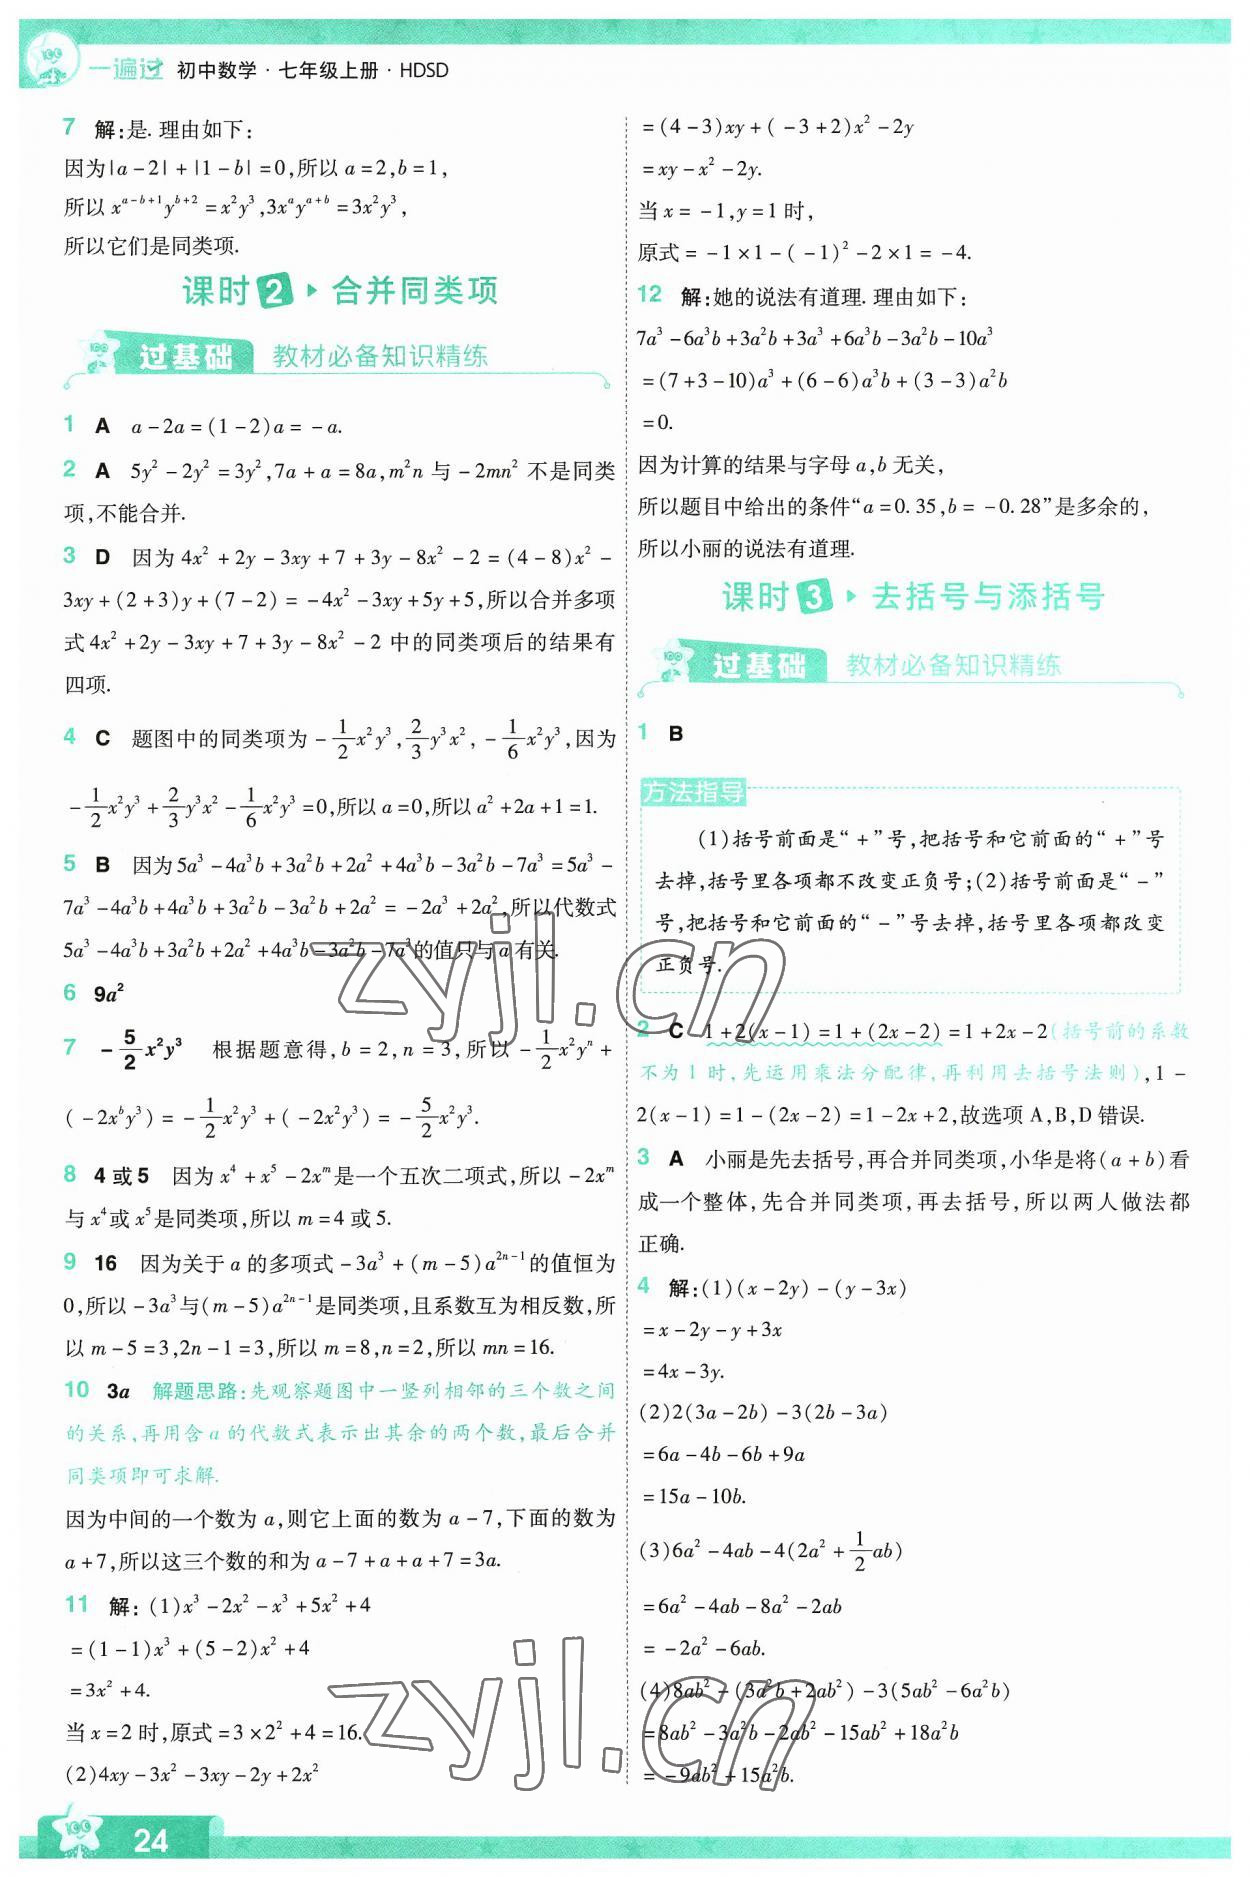 一遍过 初中数学·七年级上册·HDSD
7 解:是. 理由如下:
因为|a-2|+|1-b|=0,所以 a=2,b=1,
所以 x^{a-b+1}y^{b+2}=x²y³,3x^{a}y^{a+b}=3x²y³,
所以它们是同类项.
课时2 合并同类项
过基础 教材必备知识精练
1 A a-2a=(1-2)a=-a.
2 A 5y²-2y²=3y²,7a+a=8a,m²n 与 -2mn² 不是同类
项,不能合并.
3 D 因为 4x²+2y-3xy+7+3y-8x²-2=(4-8)x²-
3xy+(2+3)y+(7-2)=-4x²-3xy+5y+5,所以合并多项
式 4x²+2y-3xy+7+3y-8x²-2 中的同类项后的结果有
四项.
4 C 题图中的同类项为 -\frac{1}{2}x²y³,\frac{2}{3}y³x²,-\frac{1}{6}x²y³,因为
-\frac{1}{2}x²y³+\frac{2}{3}y³x²-\frac{1}{6}x²y³=0,所以 a=0,所以 a²+2a+1=1.
5 B 因为 5a³-4a³b+3a²b+2a²+4a³b-3a²b-7a³=5a³-
7a³-4a³b+4a³b+3a²b-3a²b+2a²=-2a³+2a²,所以代数式
5a³-4a³b+3a²b+2a²+4a³b-3a²b-7a³的值只与 a 有关.
6 9a²
7 -\frac{5}{2}x²y³ 根据题意得,b=2,n=3,所以 -\frac{1}{2}x²y^{n}+
(-2x^{b}y³)=-\frac{1}{2}x²y³+(-2x²y³)=-\frac{5}{2}x²y³.
8 4 或 5 因为 x⁴+x⁵-2x^{m}是一个五次二项式,所以 -2x^{m}
与 x⁴或 x⁵是同类项,所以 m=4 或 5.
9 16 因为关于 a 的多项式 -3a³+(m-5)a^{2n-1}的值恒为
0,所以 -3a³与(m-5)a^{2n-1}是同类项,且系数互为相反数,所
以 m-5=3,2n-1=3,所以 m=8,n=2,所以 mn=16.
10 3a 解题思路:先观察题图中一竖列相邻的三个数之间
的关系,再用含 a 的代数式表示出其余的两个数,最后合并
同类项即可求解.
因为中间的一个数为 a,则它上面的数为 a-7,下面的数为
a+7,所以这三个数的和为 a-7+a+a+7=3a.
11 解:(1)x³-2x²-x³+5x²+4
=(1-1)x³+(5-2)x²+4
=3x²+4.
当 x=2 时,原式=3×2²+4=16.
(2)4xy-3x²-3xy-2y+2x²
=(4-3)xy+(-3+2)x²-2y
=xy-x²-2y.
当 x=-1,y=1 时,
原式=-1×1-(-1)²-2×1=-4.
12 解:她的说法有道理. 理由如下:
7a³-6a³b+3a²b+3a³+6a³b-3a²b-10a³
=(7+3-10)a³+(6-6)a³b+(3-3)a²b
=0.
因为计算的结果与字母 a,b 无关,
所以题目中给出的条件“a=0.35,b=-0.28”是多余的,
所以小丽的说法有道理.
课时3 去括号与添括号
过基础 教材必备知识精练
1 B
方法指导
(1)括号前面是“+”号,把括号和它前面的“+”号
去掉,括号里各项都不改变正负号;(2)括号前面是“-”
号,把括号和它前面的“-”号去掉,括号里各项都改变
正负号.
2 C 1+2(x-1)=1+(2x-2)=1+2x-2(括号前的系数
不为 1 时,先运用乘法分配律,再利用去括号法则),1-
2(x-1)=1-(2x-2)=1-2x+2,故选项 A,B,D 错误.
3 A 小丽是先去括号,再合并同类项,小华是将(a+b)看
成一个整体,先合并同类项,再去括号,所以两人做法都
正确.
4 解:(1)(x-2y)-(y-3x)
=x-2y-y+3x
=4x-3y.
(2)2(3a-2b)-3(2b-3a)
=6a-4b-6b+9a
=15a-10b.
(3)6a²-4ab-4(2a²+\frac{1}{2}ab)
=6a²-4ab-8a²-2ab
=-2a²-6ab.
(4)8ab²-(3a²b+2ab²)-3(5ab²-6a²b)
=8ab²-3a²b-2ab²-15ab²+18a²b
=-9ab²+15a²b.
zyjl.cn
zyjl.cn
24